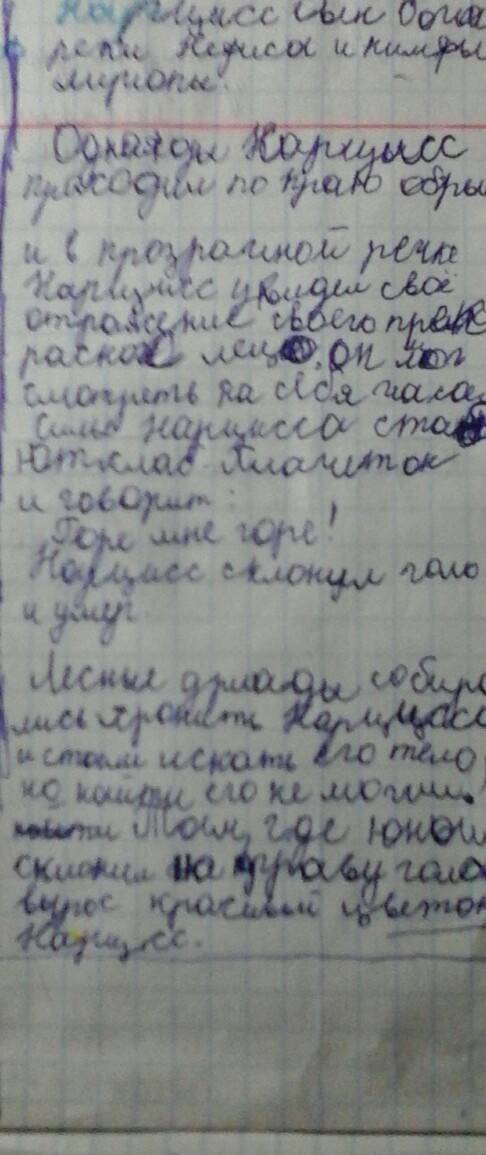 Нарцисс сын бога
реки Кефиса и нимфы
лириопы.
Однажды Нарцисс
проходил по краю обры
и в прозрачной речке
Нарцисс увидел своё
отражение своего прек
расного лица. он мог
смотреть на себя часа
Силы Нарцисса ста
и говорит:
Горе мне горе!
Нарцисс склонул голо
и умер
Лесные дриады собира
лись хронить Нарцисс
и стали искать его тело,
но найти его не могли.
Там, где юнош
склонил на траву голо
вырос красивый цветок
Нарцисс.